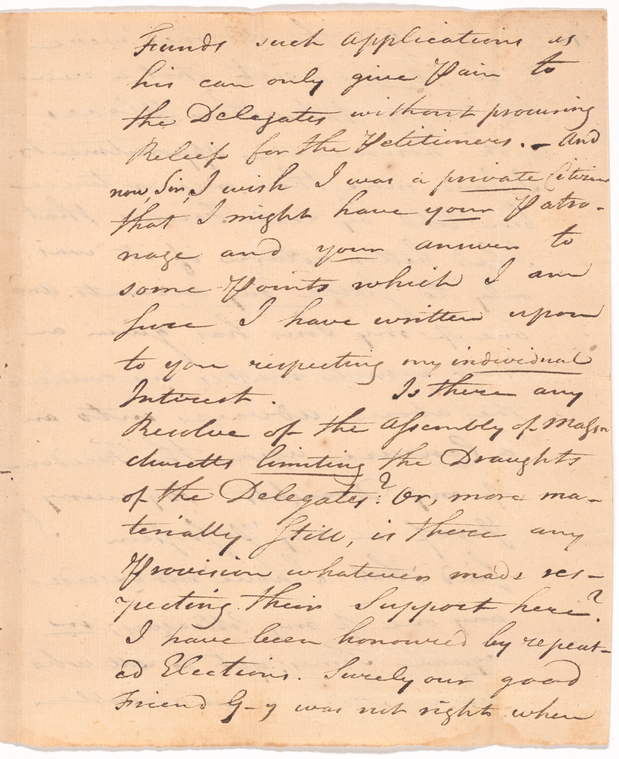 Funds such applications as
his can only give Pain to
the Delegates without procuring
Relief for the Petitioners. – And
now, Sir, I wish I was a private Citizen
that I might have your Patro-
nage and your answer to
some Points which I am
sure I have written upon
to you respecting my individual
Interest. Is there any
Resolve of the Assembly of Massa
chusetts limiting the Draughts
of the Delegates? Or, more ma-
terially still, is there any
Provision whatever made res-
pecting their Support here?
I have been honoured by repeat-
ed Elections. Surely our good
Friend G–y was not right when